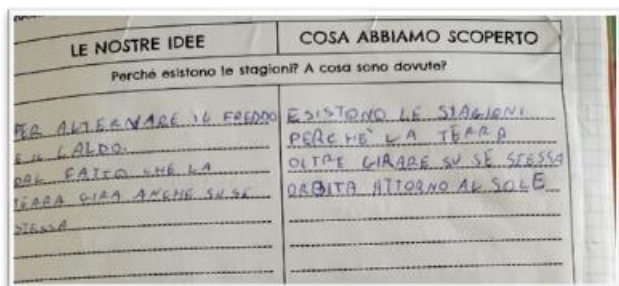 LE NOSTRE IDEE
COSA ABBIAMO SCOPERTO
Perché esistono le stagioni? A cosa sono dovute?
PER ALTERNARE IL FREDDO
E IL CALDO.
DAL FATTO CHE LA
TERRA GIRA ANCHE SU SE
STESSA
ESISTONO LE STAGIONI
PERCHE' LA TERRA
OLTRE GIRARE SU SE STESSA
ORBITA ATTORNO AL SOLE